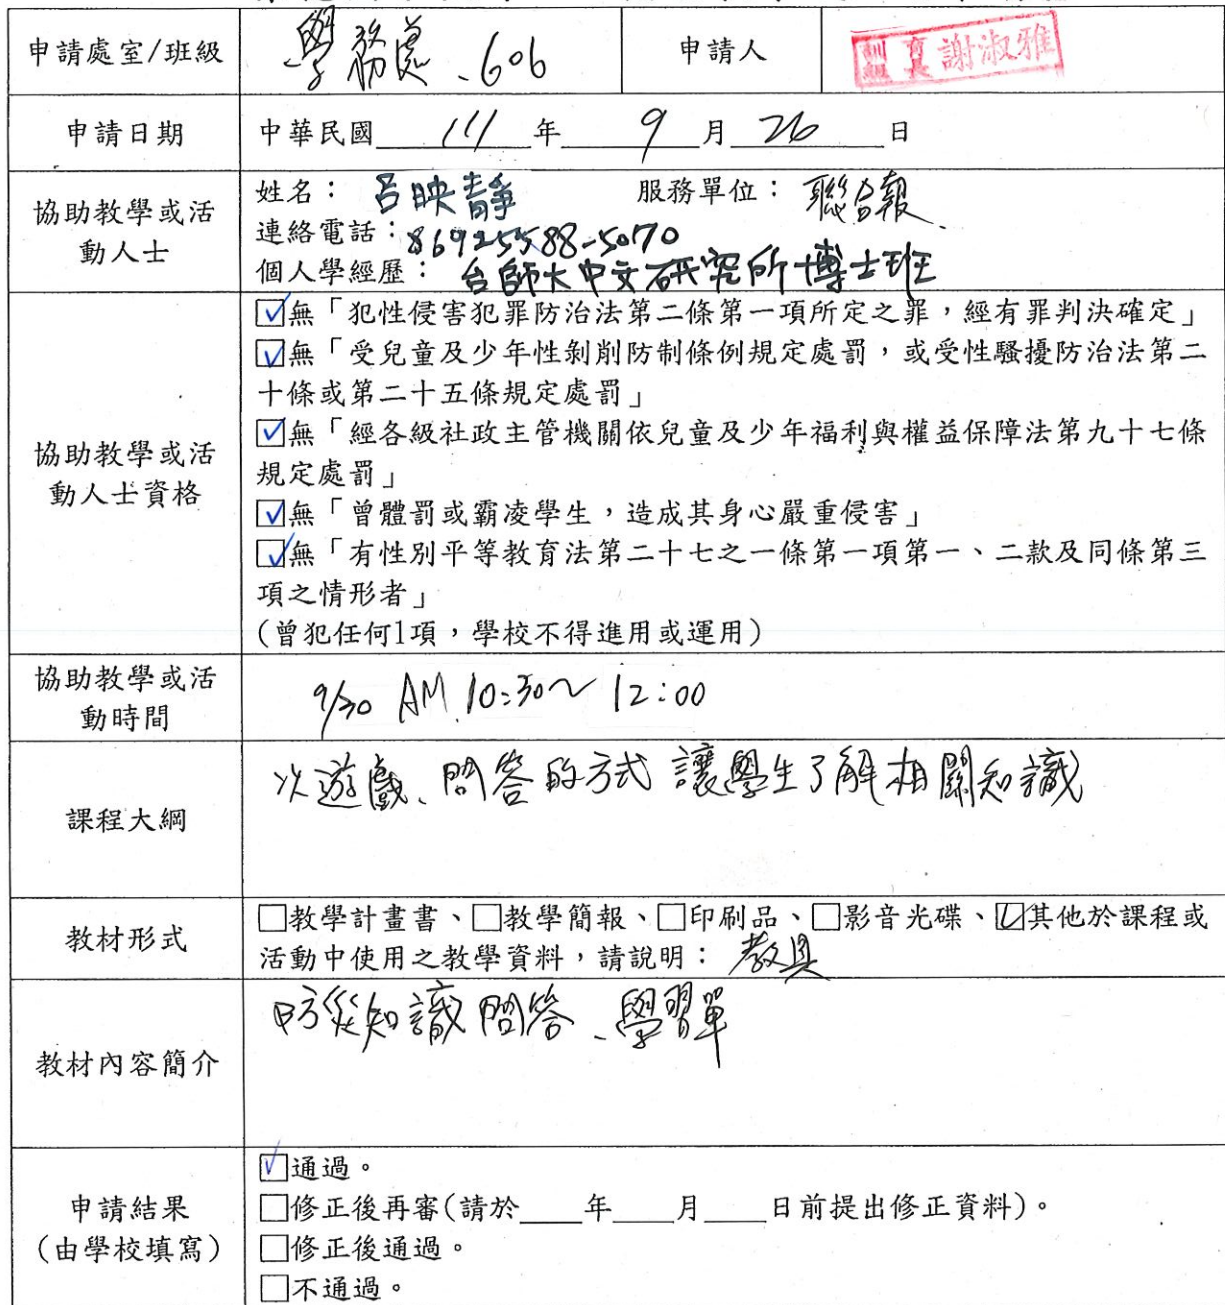 申請處室/班級 學務處、606 申請人 訓育組長 謝淑雅
申請日期 中華民國 111 年 9 月 26 日
協助教學或活
動人士
姓名：呂映靜 服務單位：聯合報
連絡電話：86925588-5070
個人學經歷：台師大中文研究所博士班
協助教學或活
動人士資格
☑無「犯性侵害犯罪防治法第二條第一項所定之罪，經有罪判決確定」
☑無「受兒童及少年性剝削防制條例規定處罰，或受性騷擾防治法第二
十條或第二十五條規定處罰」
☑無「經各級社政主管機關依兒童及少年福利與權益保障法第九十七條
規定處罰」
☑無「曾體罰或霸凌學生，造成其身心嚴重侵害」
☑無「有性別平等教育法第二十七之一條第一項第一、二款及同條第三
項之情形者」
(曾犯任何1項，學校不得進用或運用)
協助教學或活
動時間
9/30 AM 10:30~12:00
課程大綱
以遊戲、問答的方式讓學生了解相關知識
教材形式
□教學計畫書、□教學簡報、□印刷品、□影音光碟、☑其他於課程或
活動中使用之教學資料，請說明：教具
教材內容簡介
防災知識問答、學習單
申請結果
(由學校填寫)
☑通過。
□修正後再審(請於____年____月____日前提出修正資料)。
□修正後通過。
□不通過。